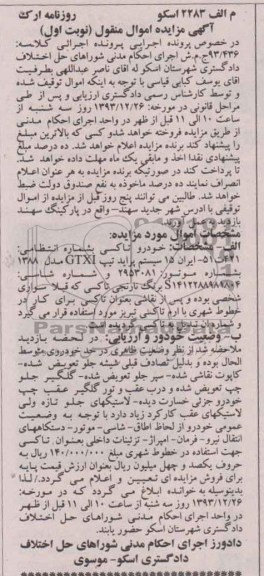 م الف ۲۲۸۳ اسکو روزنامه ارک
آگهی مزایده اموال منقول (نوبت اول)
در خصوص پرونده اجرایی پرونده اجرائی کلاسه:
۹۳/۴۳۶ج.م.ش اجرای احکام مدنی شوراهای حل اختلاف
دادگستری شهرستان اسکو له آقای ناصر عبداللهی بطرفیت
آقای یوسف کیایی قیاسی با توجه به اینکه اموال توقیف شده
و توسط کارشناس رسمی دادگستری ارزیابی و پس از طی
مراحل قانونی در مورخه: ۱۳۹۳/۱۲/۲۶ روز سه شنبه از
ساعت ۱۰ الی ۱۱ قبل از ظهر در واحد اجرای احکام مدنی
از طریق مزایده فروخته خواهد شدو کسی که بالاترین مبلغ
را پیشنهاد کند برنده مزایده اعلام خواهد شد. ده درصد مبلغ
پیشنهادی نقدا اخذ و مابقی یک ماه مهلت داده خواهد شد.
تا پرداخت کند در صورتیکه برنده مزایده به هر عنوان اعلام
انصراف نمایند ده درصد ماخوذه به نفع صندوق دولت ضبط
خواهد شد. طالبین می توانند پنج روز قبل از مزایده از اموال
توقیفی با آدرس شهر جدید سهند- واقع در پارکینگ سهند
بازدید به عمل آورند.
مشخصات اموال مورد مزایده:
الف- مشخصات: خودرو تاکسی بشماره انتظامی:
۴۲۱ت۵۱- ایران ۱۵ سیستم پراید تیپ GTXI مدل ۱۳۸۸
بشماره موتور: ۲۹۵۳۰۸۱ و شماره شاسی:
S۱۴۱۲۲۸۸۹۸۸۹۸۴ برنگ نارنجی تاکسی که قبلا سواری
شخصی بوده و پس از نقاشی بعنوان تاکسی برای کار در
خطوط شهری با آرم تاکسی تبریز مورد استفاده قرار می گیرد
ب- وضعیت خودور و ارزیابی: در لحظه بازدید
ملاحظه شد از نظر وضعیت ظاهری در حد خودروی متوسط
الحال بوده و بدلیل تصادف قبلی شیشه جلو تعویض شده-
کاپوت نقاشی شده- سپر جلو تعویض شده- گلگیر جلو
چپ تعویض شده و درب عقب و تور گلگیر عقب چپ
خودرو جزئی خسارت دیده- لاستیکهای جلو تازه ولی
لاستیکهای عقب کارکرد زیاد دارد با توجه به وضعیت
عمومی خودرو از لحاظ اطاق- شاسی- موتور- دستگاههای
انتقال نیرو- فرمان- امپراژ- تزئینات داخلی بعنوان تاکسی
جهت استفاده در خطوط شهری مبلغ ۱۴۰/۰۰۰/۰۰۰ ریال به
حروف یکصد و چهل میلیون ریال بعنوان ارزش قیمت پایه
برای فروش مزایده ای تعیین و اعلام می گردد./ لذا
بدینوسیله به خوانده ابلاغ می گردد که در مورخه:
۱۳۹۳/۱۲/۲۶ روز سه شنبه از ساعت ۱۰ الی ۱۱ قبل از ظهر
در واحد اجرای احکام مدنی شوراهای حل اختلاف
دادگستری شهرستان اسکو حضور یابند.
دادورز اجرای احکام مدنی شوراهای حل اختلاف
دادگستری اسکو- موسوی